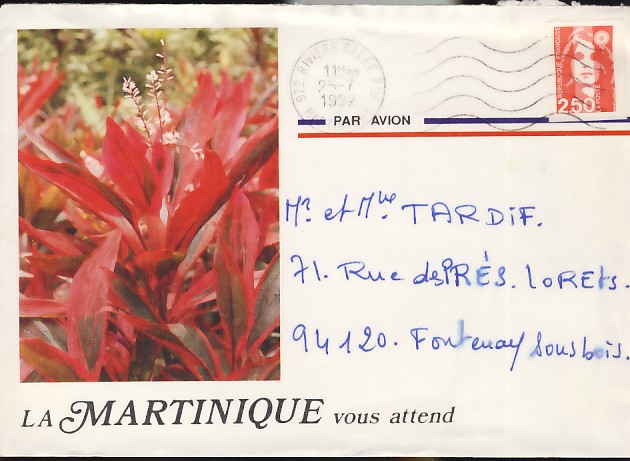 972 RIVIERE SALEE
11H
25-7
1992
REPUBLIQUE FRANÇAISE
LA POSTE
2,50
PAR AVION
Mr et Mme TARDIF.
71. Rue des PRÉS. LORETS.
94120. Fontenay Sousbois.
LA MARTINIQUE vous attend